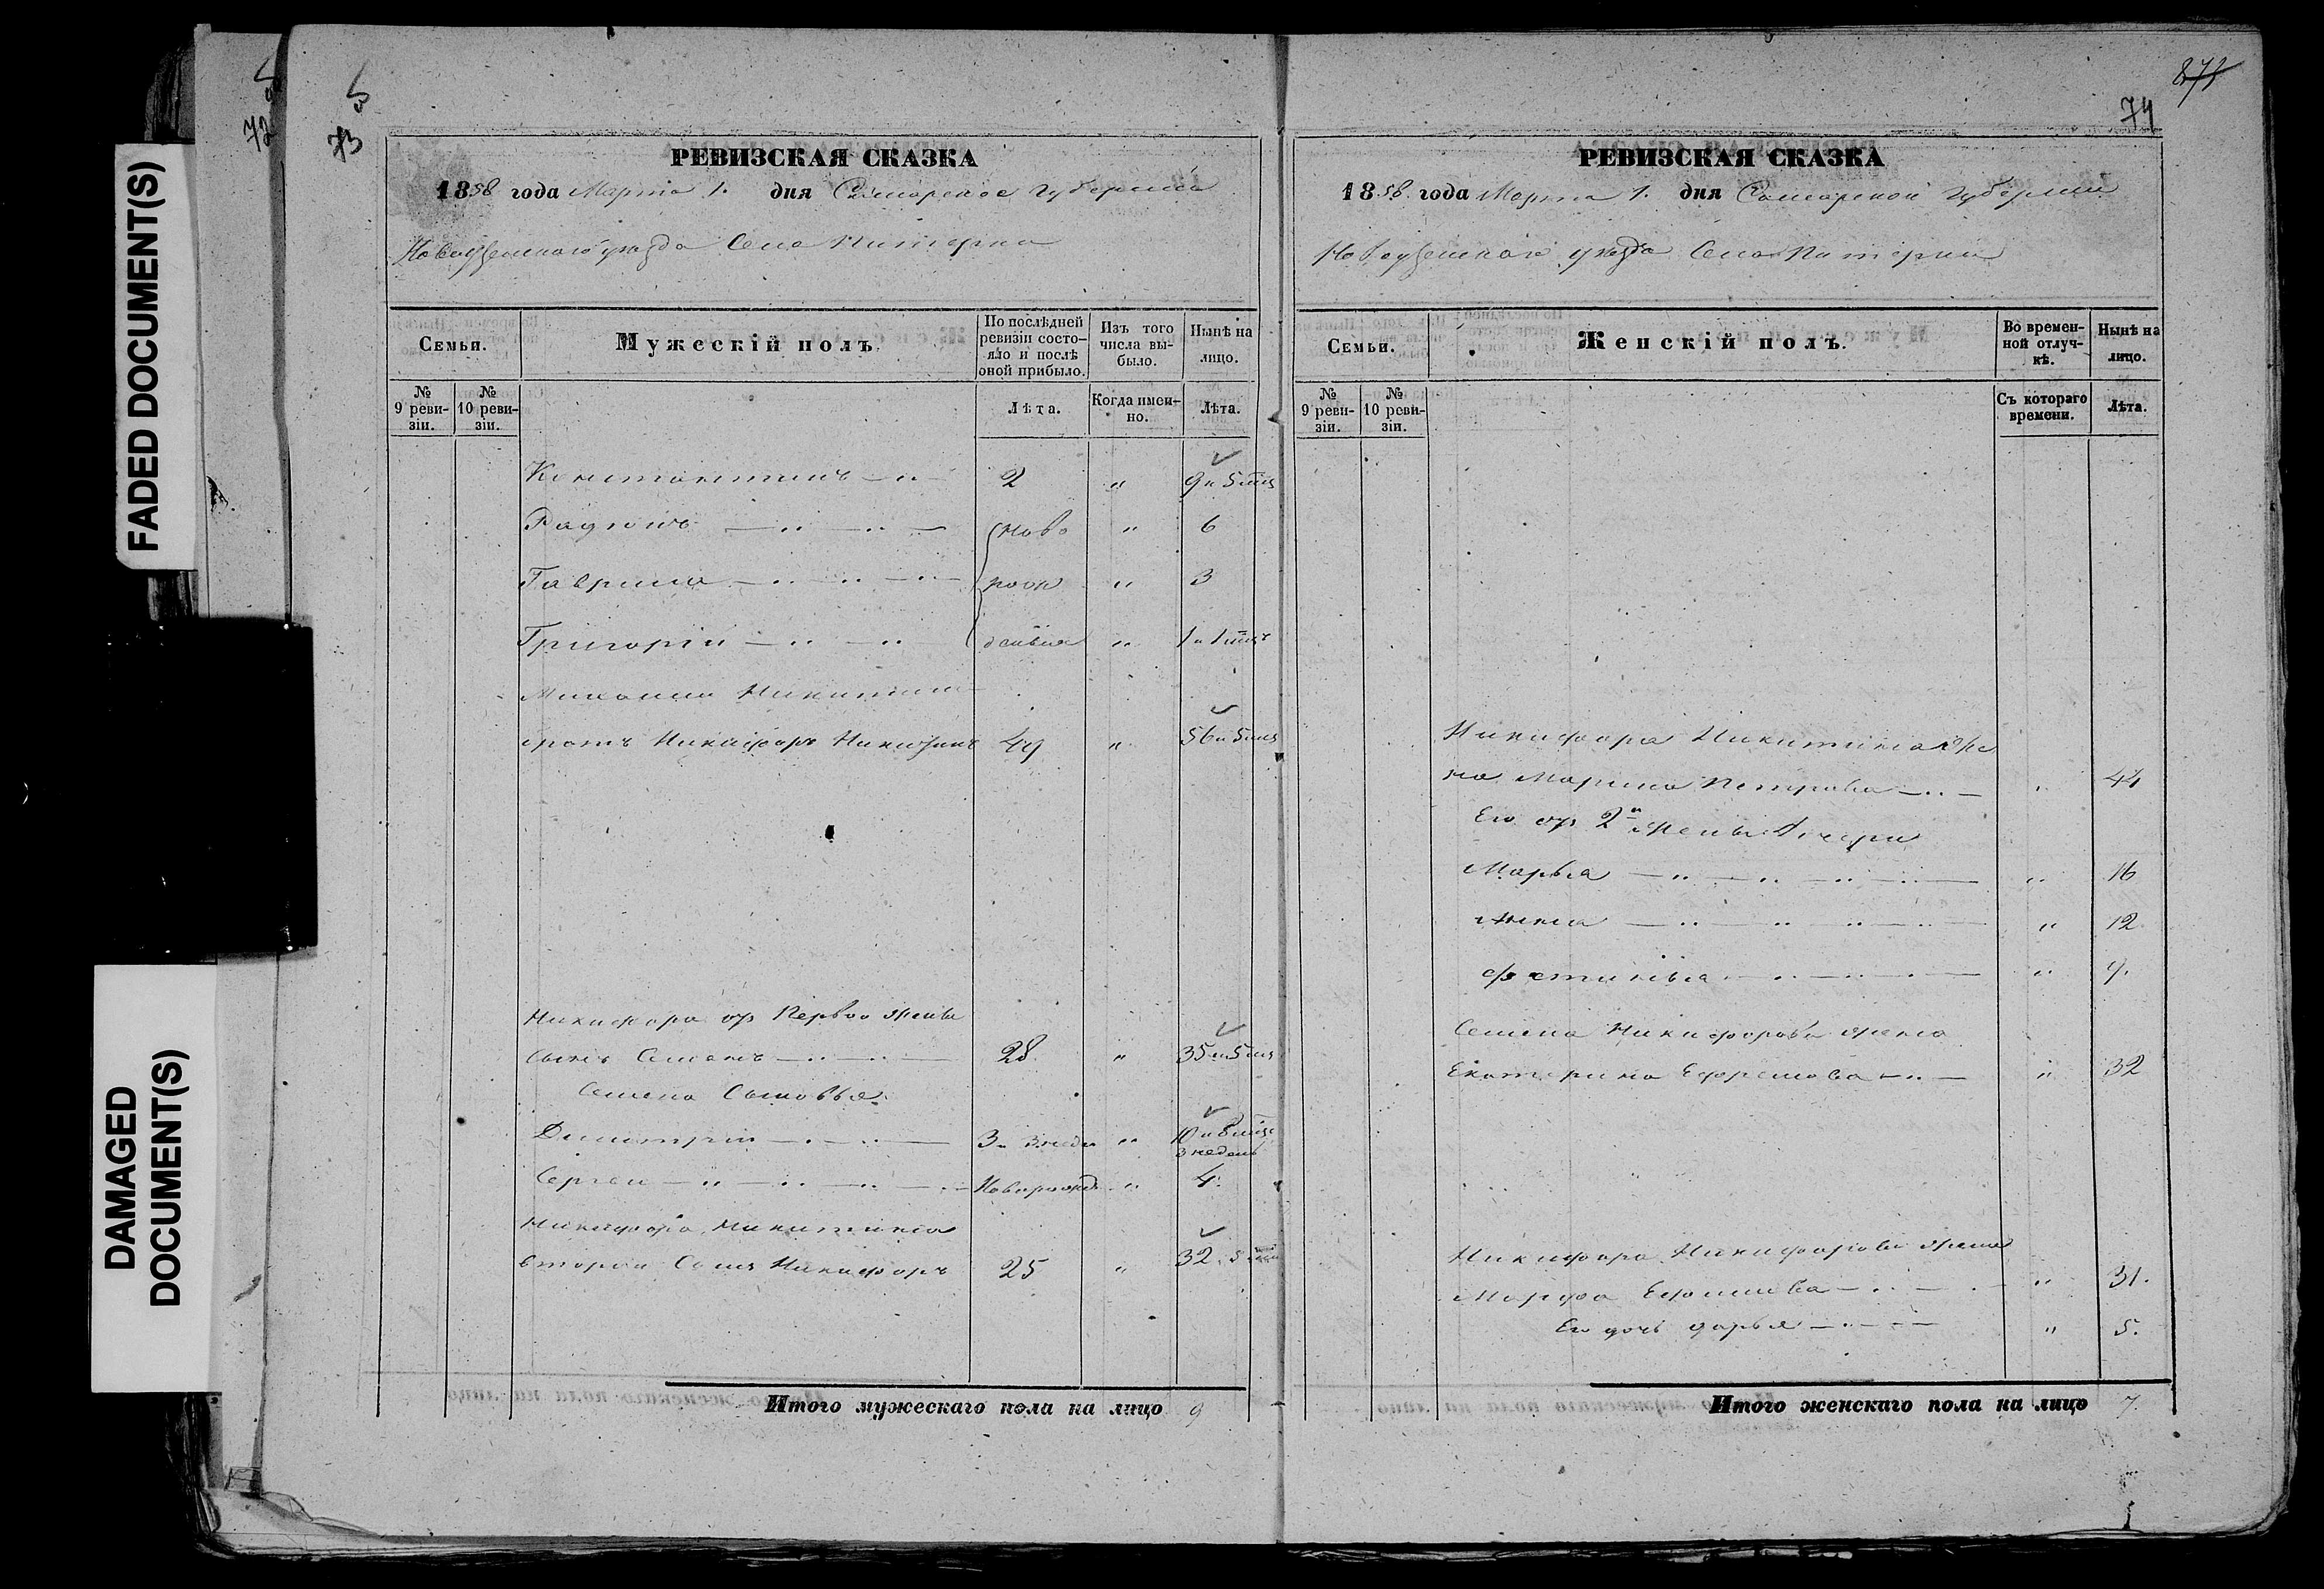 FADED DOCUMENT(S)
DAMAGED
DOCUMENT(S)
72
73
РЕВИЗСКАЯ СКАЗКА
1858 года Марта 1. дня Самарской Губерніи
Новоузенскаго уѣзда Села Питерки
Семьи.
Мужескій полъ.
По послѣдней
ревизіи состо-
яло и послѣ
оной прибыло.
Изъ того
числа вы-
было.
Нынѣ на
лицо.
№
9 реви-
зіи.
№
10 реви-
зіи.
Лѣта.
Когда имен-
но.
Лѣта.
Константинъ 2 " 9 и 5 мцъ
Радіонъ ново " 6
Гаврила рож " 3
Григорій денные " 1 и 1 мцъ
Михаила Никитина
братъ Никифоръ Никитинъ 49 " 56 и 5 мцъ
Никифора отъ Первой жены
сынъ Семенъ 28 " 35 и 5 мцъ
Семена Сыновья
Димитрій 3 и 3 неде " 10 и 8 мцъ
3 недель
Сергей Новорожд " 4
Никифора Никитина
второй Сынъ Никифоръ 25 " 32. 5 мцъ
Итого мужескаго пола на лицо 9
74
РЕВИЗСКАЯ СКАЗКА
1858 года Марта 1. дня Самарской Губерніи
Новоузенскаго уѣзда Села Питерки
Семьи.
Женскій полъ.
Во времен-
ной отлуч-
кѣ.
Нынѣ на
лицо.
№
9 реви-
зіи.
№
10 реви-
зіи.
Съ котораго
времени.
Лѣта.
Никифора Никитина же
на Марина Петрова " 44
Его отъ 2й жены Дочери
Марья " 16
Анна " 12
Фетинья " 9.
Семена Никифорова жена
Екатерина Ефремова " 32
Никифора Никифорова жена
Марфа Ефимова " 31.
Его дочь Дарья " 5.
Итого женскаго пола на лицо 7.